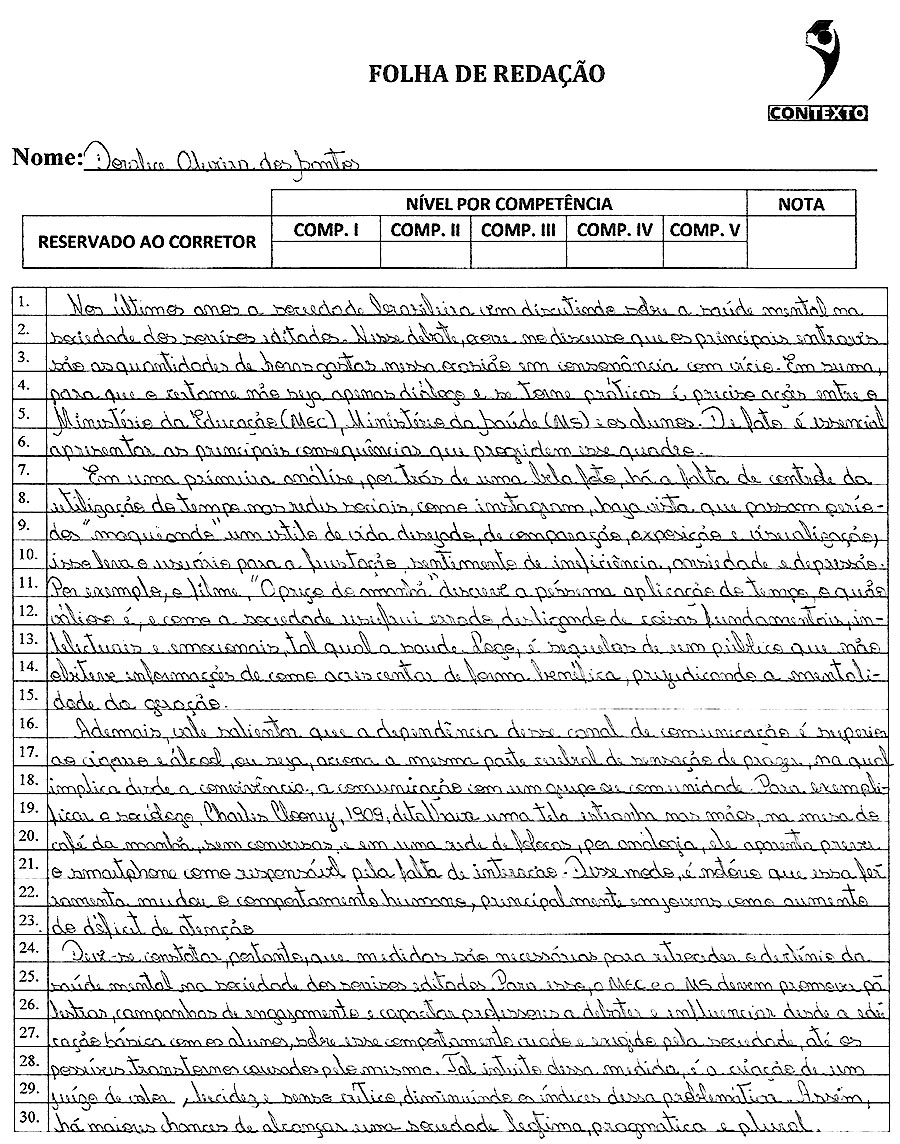 FOLHA DE REDAÇÃO
CONTEXTO
Nome: Oliveira dos Santos
NÍVEL POR COMPETÊNCIA NOTA
RESERVADO AO CORRETOR COMP. I COMP. II COMP. III COMP. IV COMP. V
1. Nos últimos anos a sociedade brasileira vem discutindo sobre a saúde mental na
2. sociedade dos sorisos editados. Nesse debate, ocorre no discurso que os principais entraves
3. são as quantidades de horas gastas nessa ocasião em consonância com vício. Em suma,
4. para que o certame não seja apenas diálogo e se torne práticas é preciso ações entre o
5. Ministério da Educação (MEC), Ministério da Saúde (MS) e os alunos. De fato é essencial
6. apresentar as principais consequências que progidem esse quadro.
7. Em uma primeira análise, por trás de uma bela foto, há a falta de controle da
8. utilização do tempo nas redes sociais, como instagram, haja vista que passam perío-
9. dos "maqueando" um estilo de vida desejado, de comparação, exposição e visualização,
10. isso leva o usuário para a frustação, sentimento de ineficiência, ansiedade e depressão.
11. Por exemplo, o filme, "O preço do amanhã" descreve a péssima aplicação do tempo, o quão
12. válioso é, e como a sociedade usufrui errado, desligando de coisas fundamentais, in-
13. telectuais e emocionais, tal qual a saude. Logo, é sequelas de um público que não
14. obteve informações de como acrescentar de forma benéfica, prejudicando a mentali-
15. dade da geração.
16. Ademais, vale salientar que a dependência desse canal de comunicação é superior
17. ao cigarro e álcool, ou seja, aciona a mesma parte cerebral de sensação de prazer, na qual
18. implica desde a convivência, a comunicação com um grupo ou comunidade. Para exempli-
19. ficar o sociólogo, Charles Clooney, 1909, detalhava uma tela estranha nas mãos, na mesa do
20. café da manhã, sem conversas, e em uma rede de fofocas, por analogia, ele aparenta prever
21. o smartphone como responsável pela falta de interacão. Desse modo, é notório que essa fer
22. ramenta mudou o comportamento humano, principalmente em jovens como aumento
23. do déficit de atenção
24. Deve-se constatar, portanto, que medidas são necessárias para retroceder o declínio da
25. saúde mental na sociedade dos sorisos editados. Para isso, o MEC e o MS devem promover pa
26. lestras, campanhas de engajamento e capacitar professores a debater e influenciar desde a edu
27. cação básica com os alunos, sobre esse comportamento criado e exigido pela sociedade, até os
28. possíveis transtornos causados pelo mesmo. Tal intuito dessa medida, é a criação de um
29. juízo de valor, lucidez e senso crítico, diminuindo os índices dessa problemática. Assim,
30. há maiores chances de alcançar uma sociedade legítima, pragmática e plural.